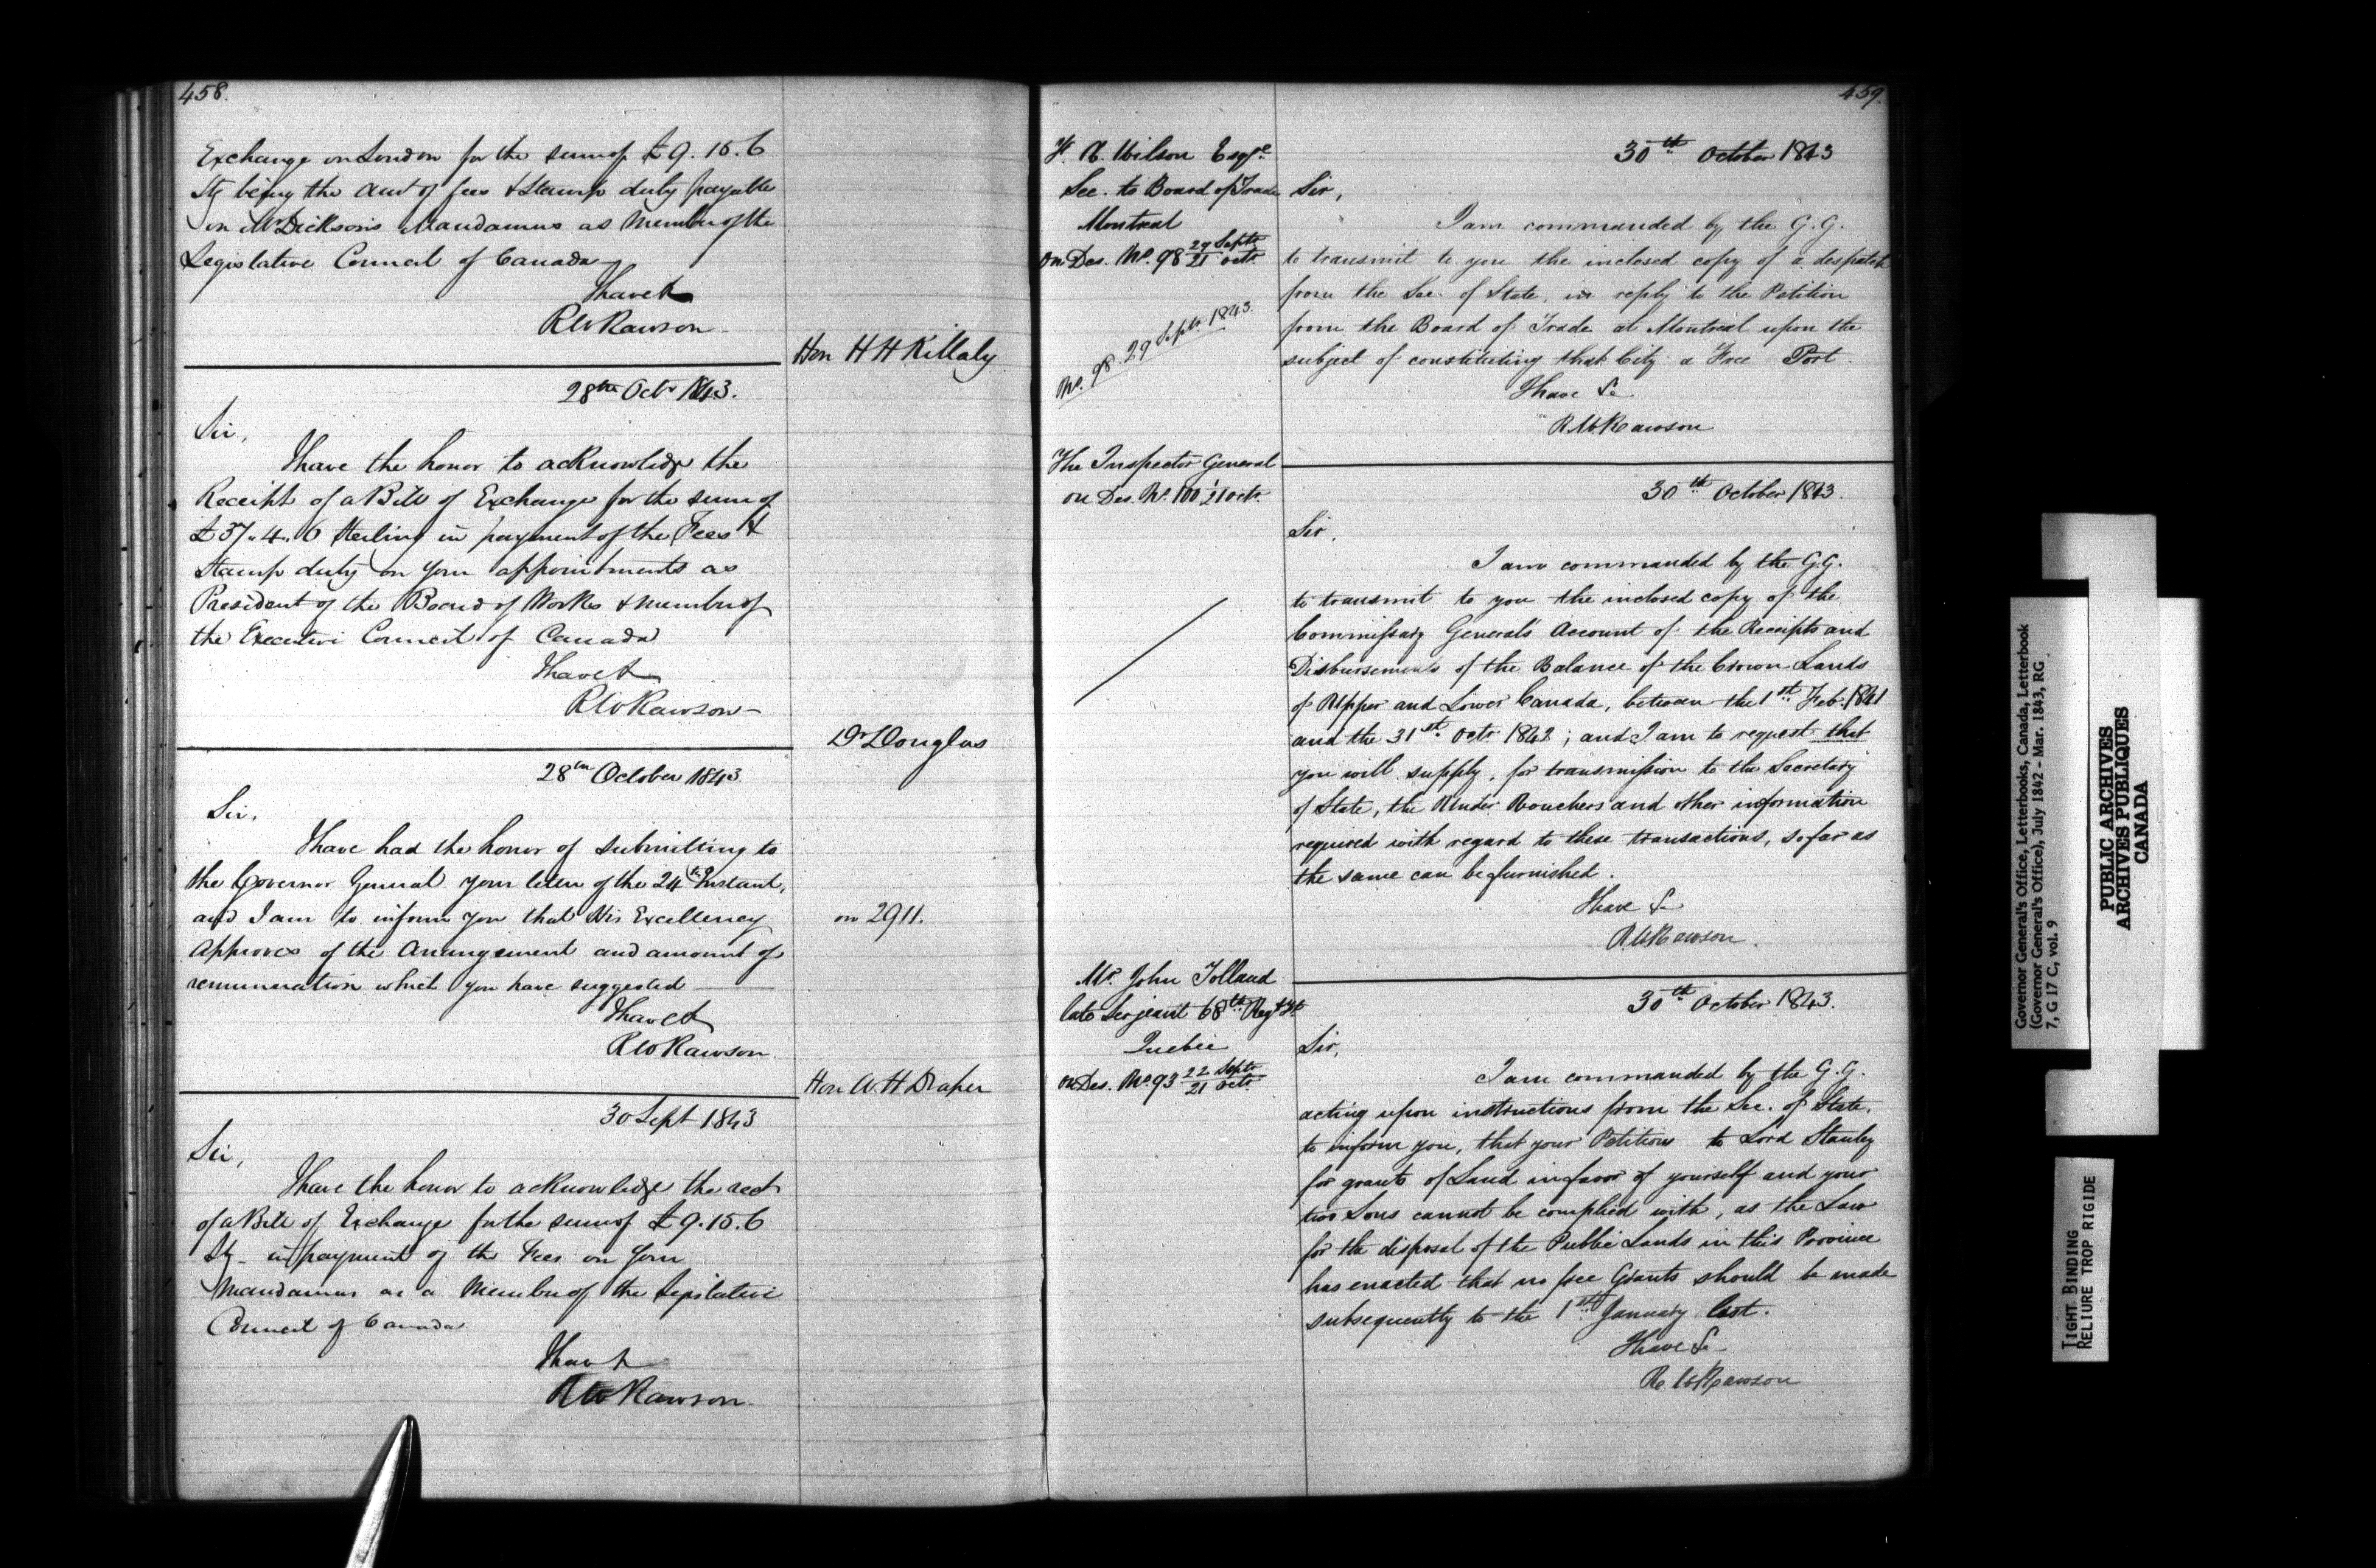 458.
Exchange on London for the sum of £9.15.6
Stg being the amt of fees & Stamp duty payable
on Mr Dickson's Mandamus as Member of the
Legislative Council of Canada
I have &
RW Rawson
Hon H H Killaly
28th Octr 1843.
Sir,
I have the honor to acknowledge the
Receipt of a Bill of Exchange for the sum of
£37.4.6 Sterling in payment of the Fees &
Stamp duty on your appointments as
President of the Board of Works & member of
the Executive Council of Canada
I have &
RW Rawson
Dr Douglas
28th October 1843.
Sir,
I have had the honor of submitting to
the Governor General your letter of the 24th Instant,
and I am to inform you that His Excellency
on 2911.
Approves of the Arrangement and amount of
remuneration which you have suggested
I have &
RW Rawson
Hon W. H Draper
30 Sept 1843
Sir,
I have the honor to acknowledge the rect
of a Bill of Exchange for the sum of £9.15.6
Stg in payment of the Fees on Your
Mandamus as a Member of the Legislative
Council of Canada
I have &
RW Rawson.
459.
Wilson Esqre
Sec. to Board of Trade
Montreal
on Des. No. 98 29 Septr
21 octr
No. 98. 29 Septr 1843.
30th October 1843
Sir,
I am commanded by the G.G.
to transmit to you the inclosed copy of a despatch
from the Sec. of State, in reply to the Petition
from the Board of Trade at Montreal upon the
subject of constituting that City a Free Port.
I have &c
R.W. Rawson
The Inspector General
on Des. No. 100 1/21 octr.
30th October 1843.
Sir,
I am commanded by the G.G.
to transmit to you the inclosed copy of the
Commissary General's Account of the Receipts and
Disbursements of the Balance of the Crown Lands
of Upper and Lower Canada, between the 1st Feb. 1841
and the 31st Octr 1842; and I am to request that
you will supply, for transmission to the Secretary
of State, the Under Vouchers and other information
required with regard to these transactions, so far as
the same can be furnished.
I have &c
R.W. Rawson.
Mr. John Tolland
late Serjeant 68th Regt
Quebec
on Des. No. 93 22 Septr
21 octr.
30th October 1843.
Sir,
I am commanded by the G.G.
acting upon instructions from the Sec. of State,
to inform you, that your Petitions to Lord Stanley
for grants of Land in favor of yourself and your
two Sons cannot be complied with, as the Law
for the disposal of the Public Lands in this Province
has enacted that no free Grants should be made
subsequently to the 1st January last.
I have &c
R. W. Rawson
Governor General's Office, Letterbooks, Canada, Letterbook
(Governor General's Office), July 1842 - Mar. 1843, RG
7, G 17 C, vol. 9
PUBLIC ARCHIVES
ARCHIVES PUBLIQUES
CANADA
TIGHT BINDING
RELIURE TROP RIGIDE